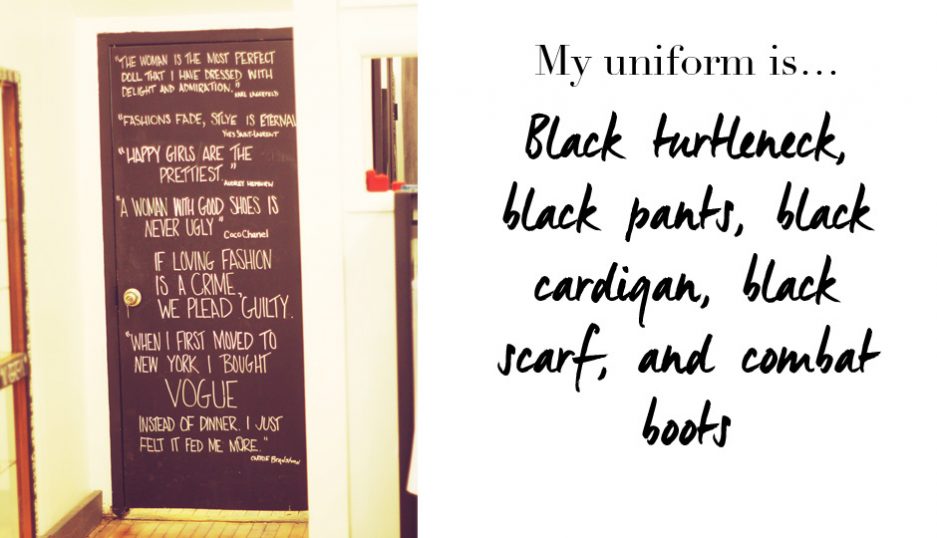 "THE WOMAN IS THE MOST PERFECT
DOLL THAT I HAVE DRESSED WITH
DELIGHT AND ADMIRATION."
KARL LAGERFELD
"FASHIONS FADE, STLYE IS ETERNAL
YVES SAINT-LAURENT
"HAPPY GIRLS ARE THE
PRETTIEST."
AUDREY HEPBURN
"A WOMAN WITH GOOD SHOES IS
NEVER UGLY"
Coco Chanel
IF LOVING FASHION
IS A CRIME,
WE PLEAD GUILTY.
"WHEN I FIRST MOVED TO
NEW YORK I BOUGHT
VOGUE
INSTEAD OF DINNER. I JUST
FELT IT FED ME MORE."
CARRIE Bradshaw
My uniform is...
Black turtleneck,
black pants, black
cardigan, black
scarf, and combat
boots